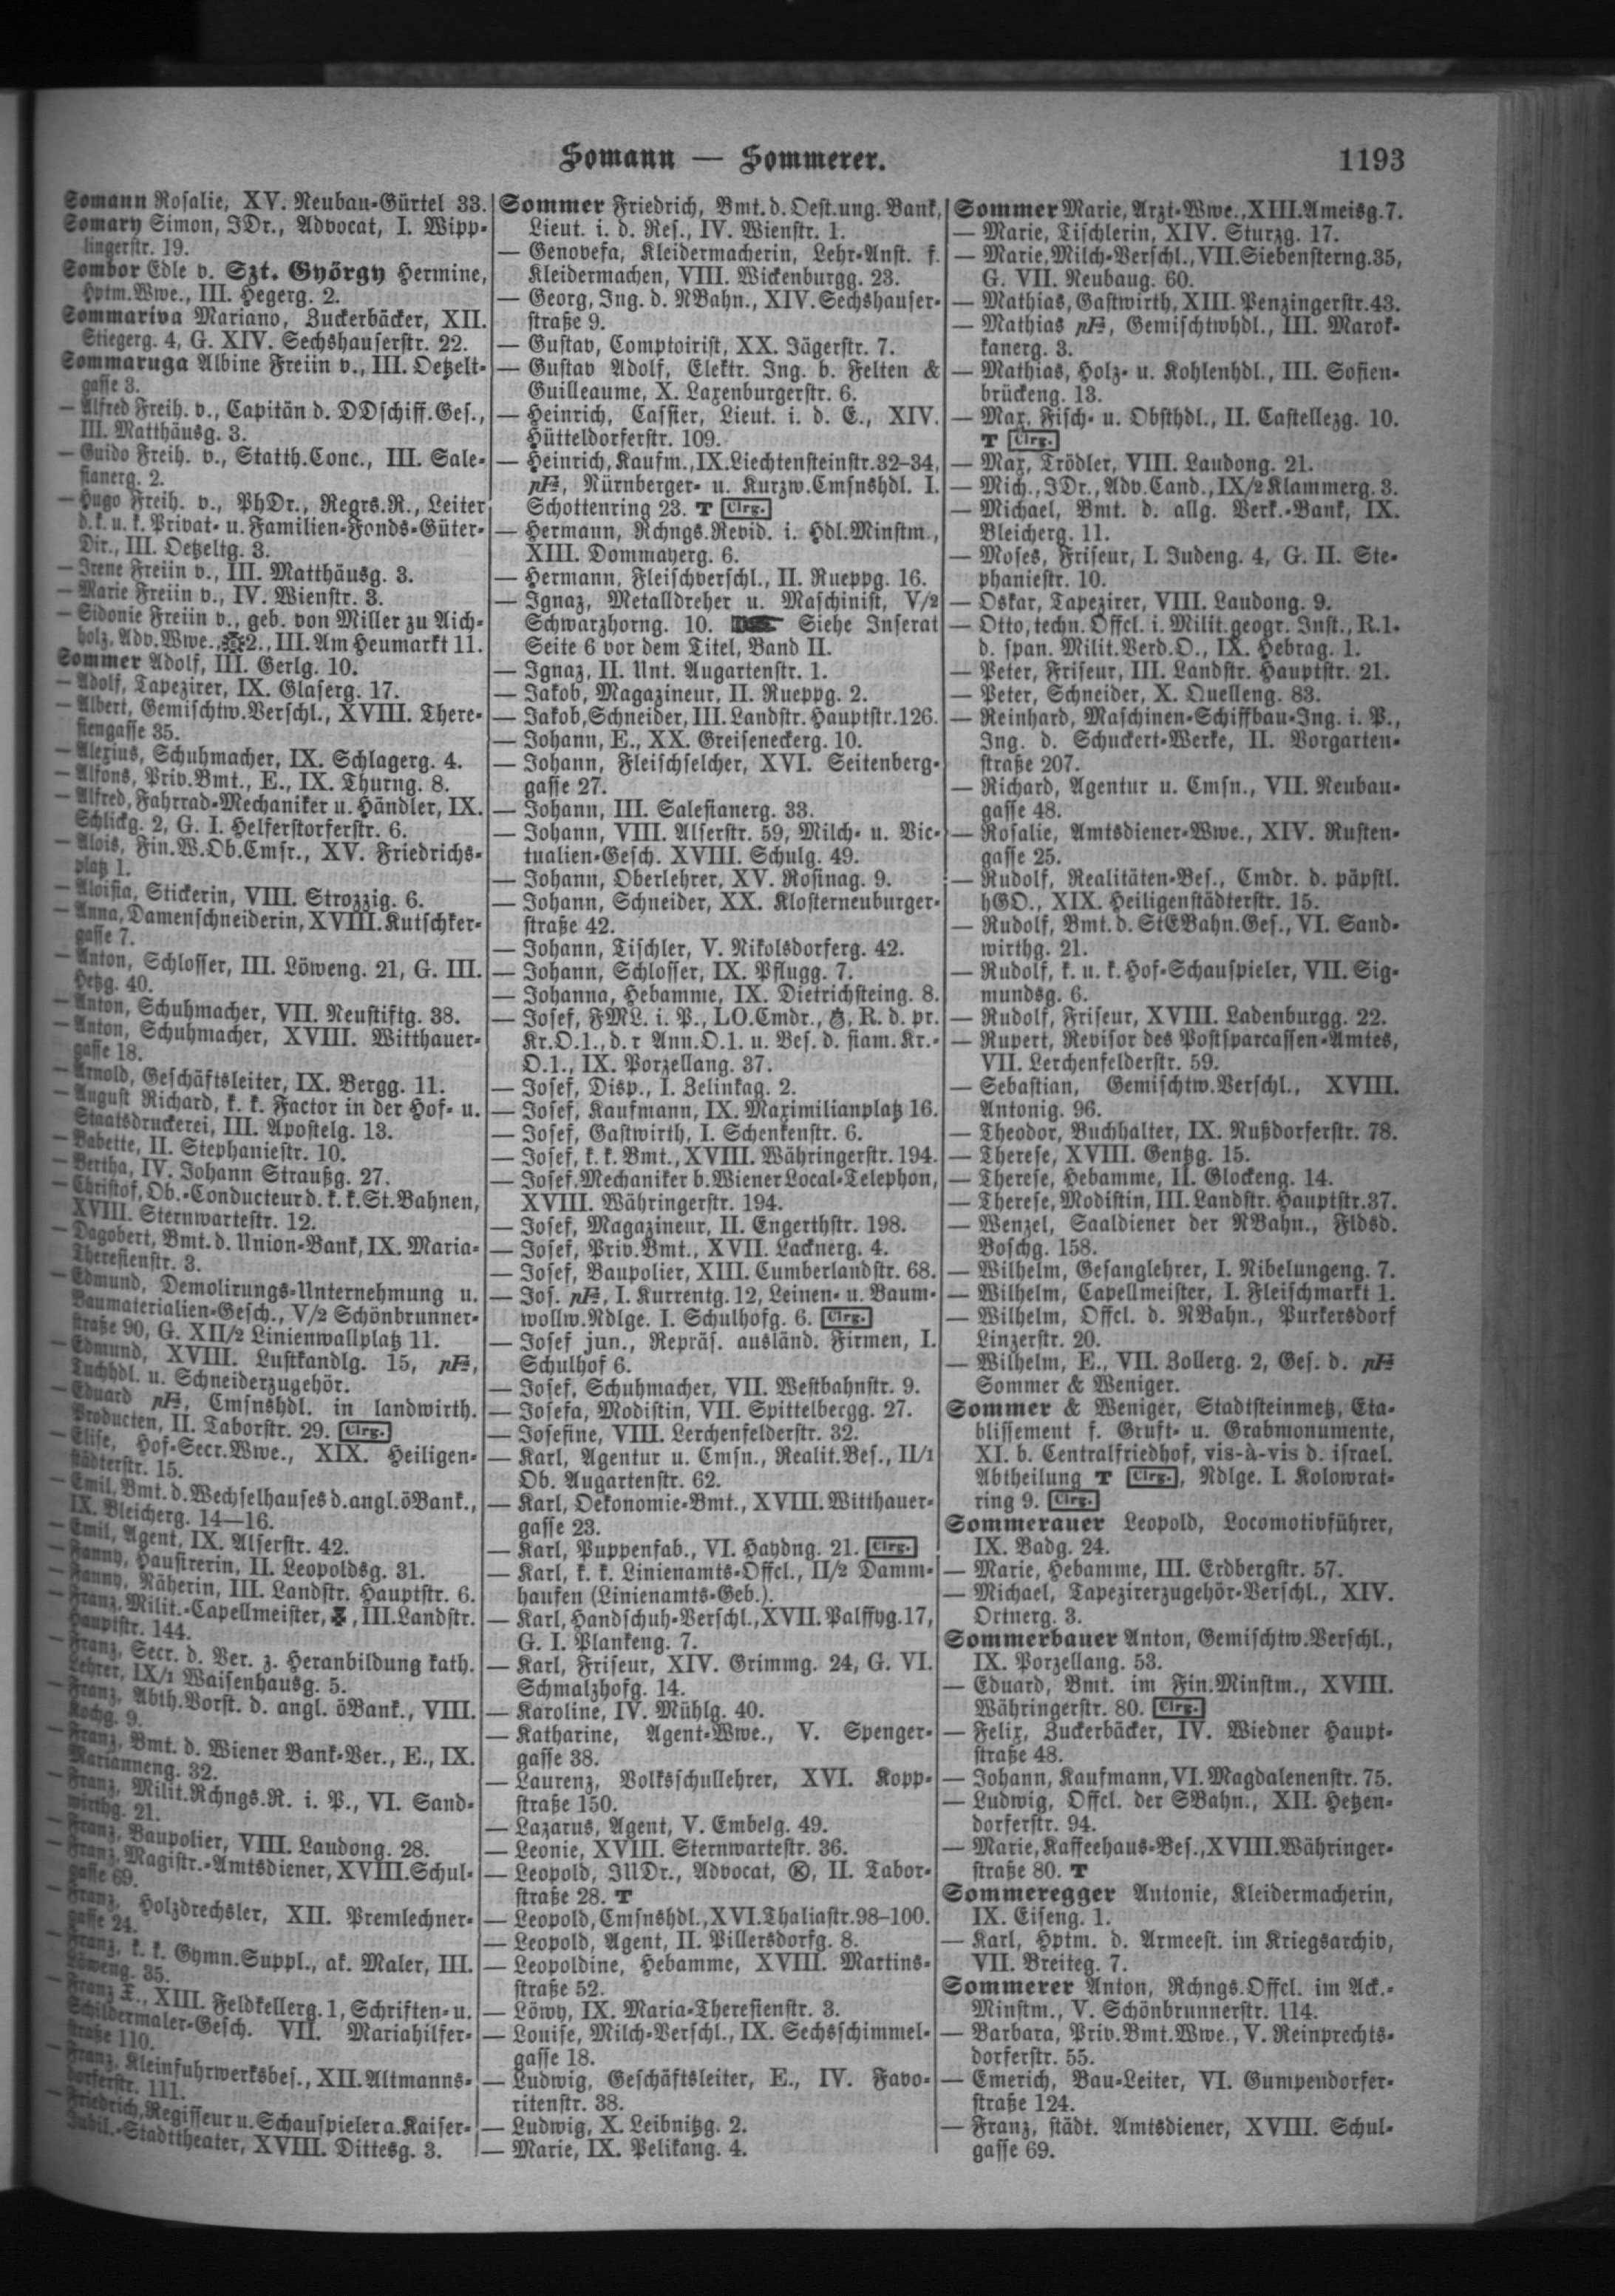 Somann — Sommerer.
1193
Somann Rosalie, XV. Neubau-Gürtel 33.
Somary Simon, JDr., Advocat, I. Wipp-
lingerstr. 19.
Sombor Edle v. Szt. György Hermine,
Hptm.Wwe., III. Hegerg. 2.
Sommariva Mariano, Zuckerbäcker, XII.
Stiegerg. 4, G. XIV. Sechshauserstr. 22.
Sommaruga Albine Freiin v., III. Oetzelt-
gasse 3.
— Alfred Freih. v., Capitän d. DDschiff.Ges.,
III. Matthäusg. 3.
— Guido Freih. v., Statth.Conc., III. Sale-
sianerg. 2.
— Hugo Freih. v., PhDr., Regrs.R., Leiter
d. k. u. k. Privat- u. Familien-Fonds-Güter-
Dir., III. Oetzeltg. 3.
— Irene Freiin v., III. Matthäusg. 3.
— Marie Freiin v., IV. Wienstr. 3.
— Sidonie Freiin v., geb. von Miller zu Aich-
holz, Adv.Wwe., 2., III. Am Heumarkt 11.
Sommer Adolf, III. Gerlg. 10.
— Adolf, Tapezirer, IX. Glaserg. 17.
— Albert, Gemischtw.Verschl., XVIII. There-
siengasse 35.
— Alexius, Schuhmacher, IX. Schlagerg. 4.
— Alfons, Priv.Bmt., E., IX. Thurng. 8.
— Alfred, Fahrrad-Mechaniker u. Händler, IX.
Schlickg. 2, G. I. Helferstorferstr. 6.
— Alois, Fin.W.Ob.Cmsr., XV. Friedrichs-
platz 1.
— Aloisia, Stickerin, VIII. Strozzig. 6.
— Anna, Damenschneiderin, XVIII. Kutschker-
gasse 7.
— Anton, Schlosser, III. Löweng. 21, G. III.
Hetzg. 40.
— Anton, Schuhmacher, VII. Neustiftg. 38.
— Anton, Schuhmacher, XVIII. Witthauer-
gasse 18.
— Arnold, Geschäftsleiter, IX. Bergg. 11.
— August Richard, k. k. Factor in der Hof- u.
Staatsdruckerei, III. Apostelg. 13.
— Babette, II. Stephaniestr. 10.
— Bertha, IV. Johann Straußg. 27.
— Christof, Ob.-Conducteur d. k. k. St.Bahnen,
XVIII. Sternwartestr. 12.
— Dagobert, Bmt. d. Union-Bank, IX. Maria-
Theresienstr. 3.
— Edmund, Demolirungs-Unternehmung u.
Baumaterialien-Gesch., V/2 Schönbrunner-
straße 90, G. XII/2 Linienwallplatz 11.
— Edmund, XVIII. Lustkandlg. 15, pFa,
Tuchhdl. u. Schneiderzugehör.
— Eduard pFa, Cmsnshdl. in landwirth.
Producten, II. Taborstr. 29. Clrg.
— Elise, Hof-Secr.Wwe., XIX. Heiligen-
städterstr. 15.
— Emil, Bmt. d. Wechselhauses d. angl. öBank.,
IX. Bleicherg. 14—16.
— Emil, Agent, IX. Alserstr. 42.
— Fanny, Hausirerin, II. Leopoldsg. 31.
— Fanny, Näherin, III. Landstr. Hauptstr. 6.
— Franz, Milit.-Capellmeister, , III. Landstr.
Hauptstr. 144.
— Franz, Secr. d. Ver. z. Heranbildung kath.
Lehrer, IX/1 Waisenhausg. 5.
— Franz, Abth.Vorst. d. angl. öBank., VIII.
Kochg. 9.
— Franz, Bmt. d. Wiener Bank-Ver., E., IX.
Marianneng. 32.
— Franz, Milit.Rchngs.R. i. P., VI. Sand-
wirthg. 21.
— Franz, Baupolier, VIII. Laudong. 28.
— Franz, Magistr.-Amtsdiener, XVIII. Schul-
gasse 69.
— Franz, Holzdrechsler, XII. Premlechner-
gasse 24.
— Franz, k. k. Gymn.Suppl., ak. Maler, III.
Löweng. 35.
— Franz X., XIII. Feldkellerg. 1, Schriften- u.
Schildermaler-Gesch. VII. Mariahilfer-
straße 110.
— Franz, Kleinfuhrwerksbes., XII. Altmanns-
dorferstr. 111.
— Friedrich, Regisseur u. Schauspieler a. Kaiser-
Jubil.-Stadttheater, XVIII. Dittesg. 3.
Sommer Friedrich, Bmt. d. Oest.ung. Bank,
Lieut. i. d. Res., IV. Wienstr. 1.
— Genovefa, Kleidermacherin, Lehr-Anst. f.
Kleidermachen, VIII. Wickenburgg. 23.
— Georg, Ing. d. NBahn., XIV. Sechshauser-
straße 9.
— Gustav, Comptoirist, XX. Jägerstr. 7.
— Gustav Adolf, Elektr. Ing. b. Felten &
Guilleaume, X. Laxenburgerstr. 6.
— Heinrich, Cassier, Lieut. i. d. E., XIV.
Hütteldorferstr. 109.
— Heinrich, Kaufm., IX. Liechtensteinstr. 32–34,
pFa, Nürnberger- u. Kurzw.Cmsnshdl. I.
Schottenring 23. T Clrg.
— Hermann, Rchngs.Revid. i. Hdl.Minstm.,
XIII. Dommayerg. 6.
— Hermann, Fleischverschl., II. Rueppg. 16.
— Ignaz, Metalldreher u. Maschinist, V/2
Schwarzhorng. 10. Siehe Inserat
Seite 6 vor dem Titel, Band II.
— Ignaz, II. Unt. Augartenstr. 1.
— Jakob, Magazineur, II. Rueppg. 2.
— Jakob, Schneider, III. Landstr. Hauptstr. 126.
— Johann, E., XX. Greiseneckerg. 10.
— Johann, Fleischselcher, XVI. Seitenberg-
gasse 27.
— Johann, III. Salesianerg. 33.
— Johann, VIII. Alserstr. 59, Milch- u. Vic-
tualien-Gesch. XVIII. Schulg. 49.
— Johann, Oberlehrer, XV. Rosinag. 9.
— Johann, Schneider, XX. Klosterneuburger-
straße 42.
— Johann, Tischler, V. Nikolsdorferg. 42.
— Johann, Schlosser, IX. Pflugg. 7.
— Johanna, Hebamme, IX. Dietrichsteing. 8.
— Josef, FML. i. P., LO.Cmdr., , R. d. pr.
Kr.O.1., d. r Ann.O.1. u. Bes. d. siam. Kr.-
O.1., IX. Porzellang. 37.
— Josef, Disp., I. Zelinkag. 2.
— Josef, Kaufmann, IX. Maximilianplatz 16.
— Josef, Gastwirth, I. Schenkenstr. 6.
— Josef, k. k. Bmt., XVIII. Währingerstr. 194.
— Josef, Mechaniker b. Wiener Local-Telephon,
XVIII. Währingerstr. 194.
— Josef, Magazineur, II. Engerthstr. 198.
— Josef, Priv.Bmt., XVII. Lacknerg. 4.
— Josef, Baupolier, XIII. Cumberlandstr. 68.
— Jos. pFa, I. Kurrentg. 12, Leinen- u. Baum-
wollw.Ndlge. I. Schulhofg. 6. Clrg.
— Josef jun., Repräs. ausländ. Firmen, I.
Schulhof 6.
— Josef, Schuhmacher, VII. Westbahnstr. 9.
— Josefa, Modistin, VII. Spittelbergg. 27.
— Josefine, VIII. Lerchenfelderstr. 32.
— Karl, Agentur u. Cmsn., Realit.Bes., II/1
Ob. Augartenstr. 62.
— Karl, Oekonomie-Bmt., XVIII. Witthauer-
gasse 23.
— Karl, Puppenfab., VI. Haydng. 21. Clrg.
— Karl, k. k. Linienamts-Offcl., II/2 Damm-
haufen (Linienamts-Geb.).
— Karl, Handschuh-Verschl., XVII. Palffyg. 17,
G. I. Plankeng. 7.
— Karl, Friseur, XIV. Grimmg. 24, G. VI.
Schmalzhofg. 14.
— Karoline, IV. Mühlg. 40.
— Katharine, Agent-Wwe., V. Spenger-
gasse 38.
— Laurenz, Volksschullehrer, XVI. Kopp-
straße 150.
— Lazarus, Agent, V. Embelg. 49.
— Leonie, XVIII. Sternwartestr. 36.
— Leopold, JUDr., Advocat, Ⓚ, II. Tabor-
straße 28. T
— Leopold, Cmsnshdl., XVI. Thaliastr. 98–100.
— Leopold, Agent, II. Pillersdorfg. 8.
— Leopoldine, Hebamme, XVIII. Martins-
straße 52.
— Löwy, IX. Maria-Theresienstr. 3.
— Louise, Milch-Verschl., IX. Sechsschimmel-
gasse 18.
— Ludwig, Geschäftsleiter, E., IV. Favo-
ritenstr. 38.
— Ludwig, X. Leibnitzg. 2.
— Marie, IX. Pelikang. 4.
Sommer Marie, Arzt-Wwe., XIII. Ameisg. 7.
— Marie, Tischlerin, XIV. Sturzg. 17.
— Marie, Milch-Verschl., VII. Siebensterng. 35,
G. VII. Neubaug. 60.
— Mathias, Gastwirth, XIII. Penzingerstr. 43.
— Mathias pFa, Gemischtwhdl., III. Marok-
kanerg. 3.
— Mathias, Holz- u. Kohlenhdl., III. Sofien-
brückeng. 13.
— Max, Fisch- u. Obsthdl., II. Castellezg. 10.
T Clrg.
— Max, Trödler, VIII. Laudong. 21.
— Mich., JDr., Adv.Cand., IX/2 Klammerg. 3.
— Michael, Bmt. d. allg. Verk.-Bank, IX.
Bleicherg. 11.
— Moses, Friseur, I. Judeng. 4, G. II. Ste-
phaniestr. 10.
— Oskar, Tapezirer, VIII. Laudong. 9.
— Otto, techn. Offcl. i. Milit.geogr. Inst., R.1.
d. span. Milit.Verd.O., IX. Hebrag. 1.
— Peter, Friseur, III. Landstr. Hauptstr. 21.
— Peter, Schneider, X. Quelleng. 83.
— Reinhard, Maschinen-Schiffbau-Ing. i. P.,
Ing. d. Schuckert-Werke, II. Vorgarten-
straße 207.
— Richard, Agentur u. Cmsn., VII. Neubau-
gasse 48.
— Rosalie, Amtsdiener-Wwe., XIV. Rusten-
gasse 25.
— Rudolf, Realitäten-Bes., Cmdr. d. päpstl.
hGO., XIX. Heiligenstädterstr. 15.
— Rudolf, Bmt. d. StEBahn.Ges., VI. Sand-
wirthg. 21.
— Rudolf, k. u. k. Hof-Schauspieler, VII. Sig-
mundsg. 6.
— Rudolf, Friseur, XVIII. Ladenburgg. 22.
— Rupert, Revisor des Postsparcassen-Amtes,
VII. Lerchenfelderstr. 59.
— Sebastian, Gemischtw.Verschl., XVIII.
Antonig. 96.
— Theodor, Buchhalter, IX. Nußdorferstr. 78.
— Therese, XVIII. Gentzg. 15.
— Therese, Hebamme, II. Glockeng. 14.
— Therese, Modistin, III. Landstr. Hauptstr. 37.
— Wenzel, Saaldiener der NBahn., Fldsd.
Boschg. 158.
— Wilhelm, Gesanglehrer, I. Nibelungeng. 7.
— Wilhelm, Capellmeister, I. Fleischmarkt 1.
— Wilhelm, Offcl. d. NBahn., Purkersdorf
Linzerstr. 20.
— Wilhelm, E., VII. Zollerg. 2, Ges. d. pFa
Sommer & Weniger.
Sommer & Weniger, Stadtsteinmetz, Eta-
blissement f. Gruft- u. Grabmonumente,
XI. b. Centralfriedhof, vis-à-vis d. israel.
Abtheilung T Clrg., Ndlge. I. Kolowrat-
ring 9. Clrg.
Sommerauer Leopold, Locomotivführer,
IX. Badg. 24.
— Marie, Hebamme, III. Erdbergstr. 57.
— Michael, Tapezirerzugehör-Verschl., XIV.
Ortnerg. 3.
Sommerbauer Anton, Gemischtw.Verschl.,
IX. Porzellang. 53.
— Eduard, Bmt. im Fin.Minstm., XVIII.
Währingerstr. 80. Clrg.
— Felix, Zuckerbäcker, IV. Wiedner Haupt-
straße 48.
— Johann, Kaufmann, VI. Magdalenenstr. 75.
— Ludwig, Offcl. der SBahn., XII. Hetzen-
dorferstr. 94.
— Marie, Kaffeehaus-Bes., XVIII. Währinger-
straße 80. T
Sommeregger Antonie, Kleidermacherin,
IX. Eiseng. 1.
— Karl, Hptm. d. Armeest. im Kriegsarchiv,
VII. Breiteg. 7.
Sommerer Anton, Rchngs.Offcl. im Ack.-
Minstm., V. Schönbrunnerstr. 114.
— Barbara, Priv.Bmt.Wwe., V. Reinprechts-
dorferstr. 55.
— Emerich, Bau-Leiter, VI. Gumpendorfer-
straße 124.
— Franz, städt. Amtsdiener, XVIII. Schul-
gasse 69.